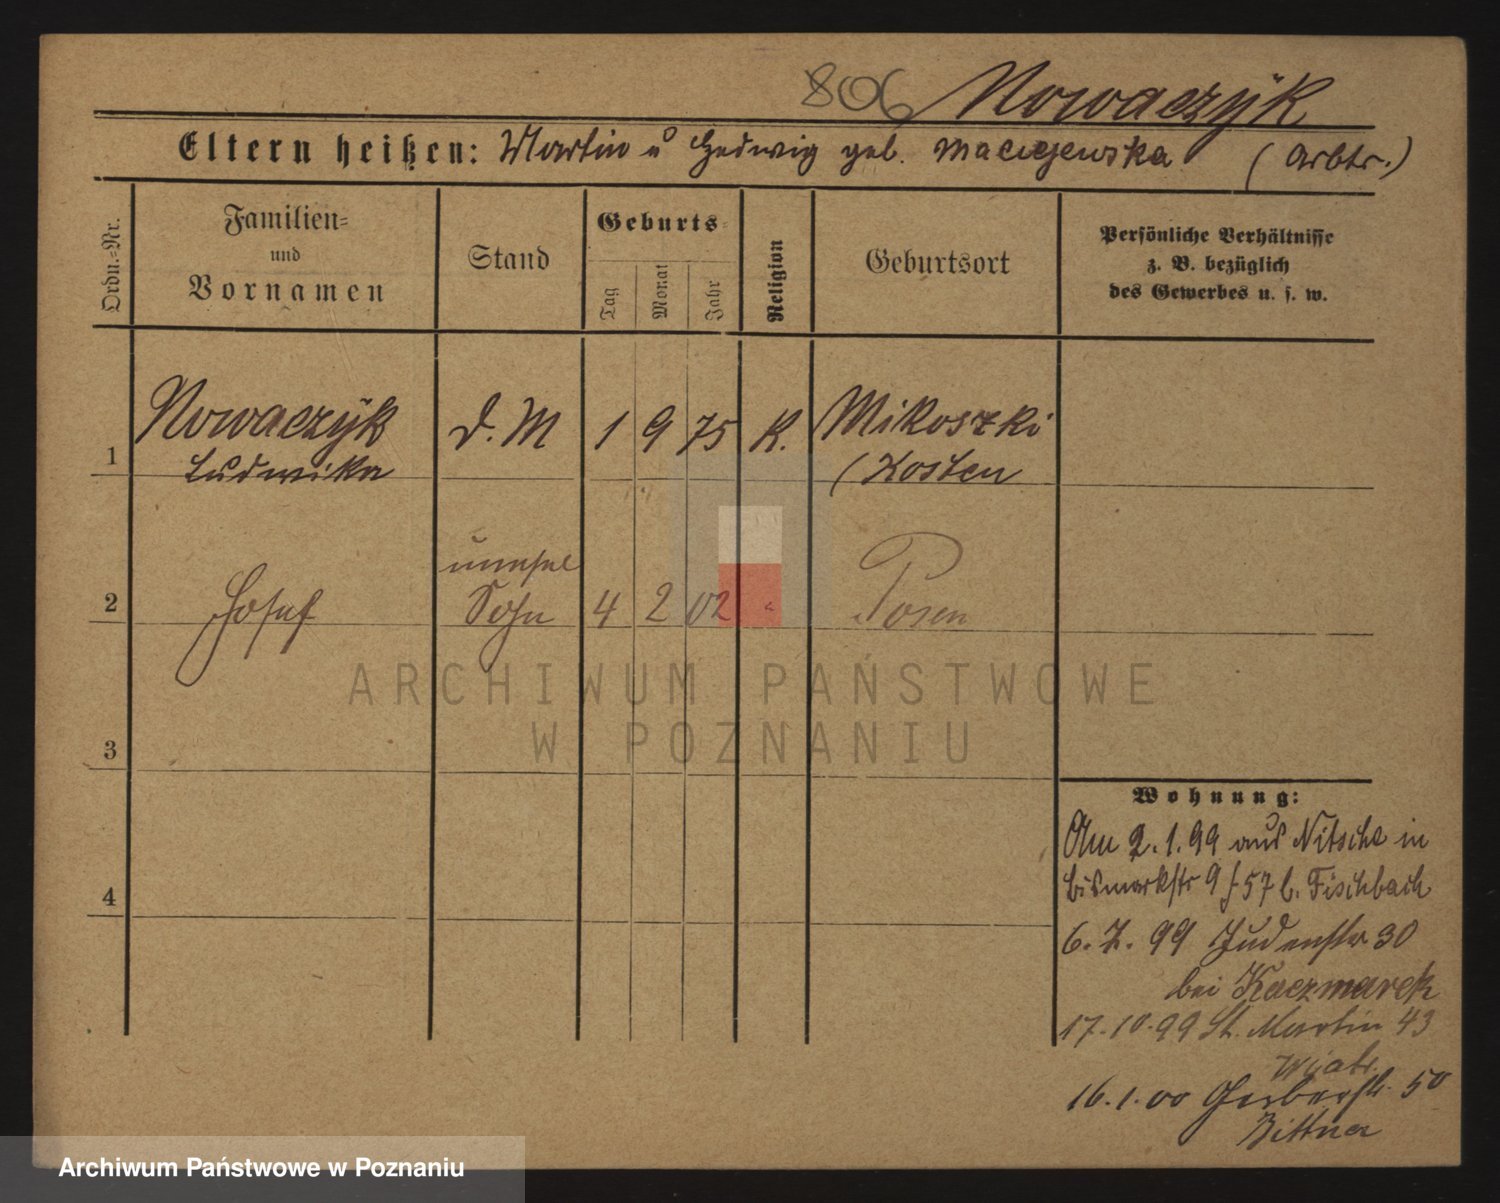 806 Nowaczyk
Eltern heißen: Martin u Hedwig geb. Maciejewska (Arbtr.)
Ordn.-Nr.
Familien-
und
Vornamen
Stand
Geburts-
Tag
Monat
Jahr
Religion
Geburtsort
Persönliche Verhältnisse
z. B. bezüglich
des Gewerbes u. s. w.
1 Nowaczyk D.M 1 9 75 K. Mikoszki
Ludwika (Kosten
unehel
2 Josef Sohn 4 2 02 " Posen
ARCHIWUM PAŃSTWOWE
W POZNANIU
3
4
Wohnung:
Am 2.1.99 aus Nitsche in
Bismarkstr 9 f 57 b. Fischbach
6.7.99 Judenstr 30
bei Kaczmarek
17.10.99 St. Martin 43
Wiatr.
16.1.00 Gerberstr. 50
Bittner
Archiwum Państwowe w Poznaniu